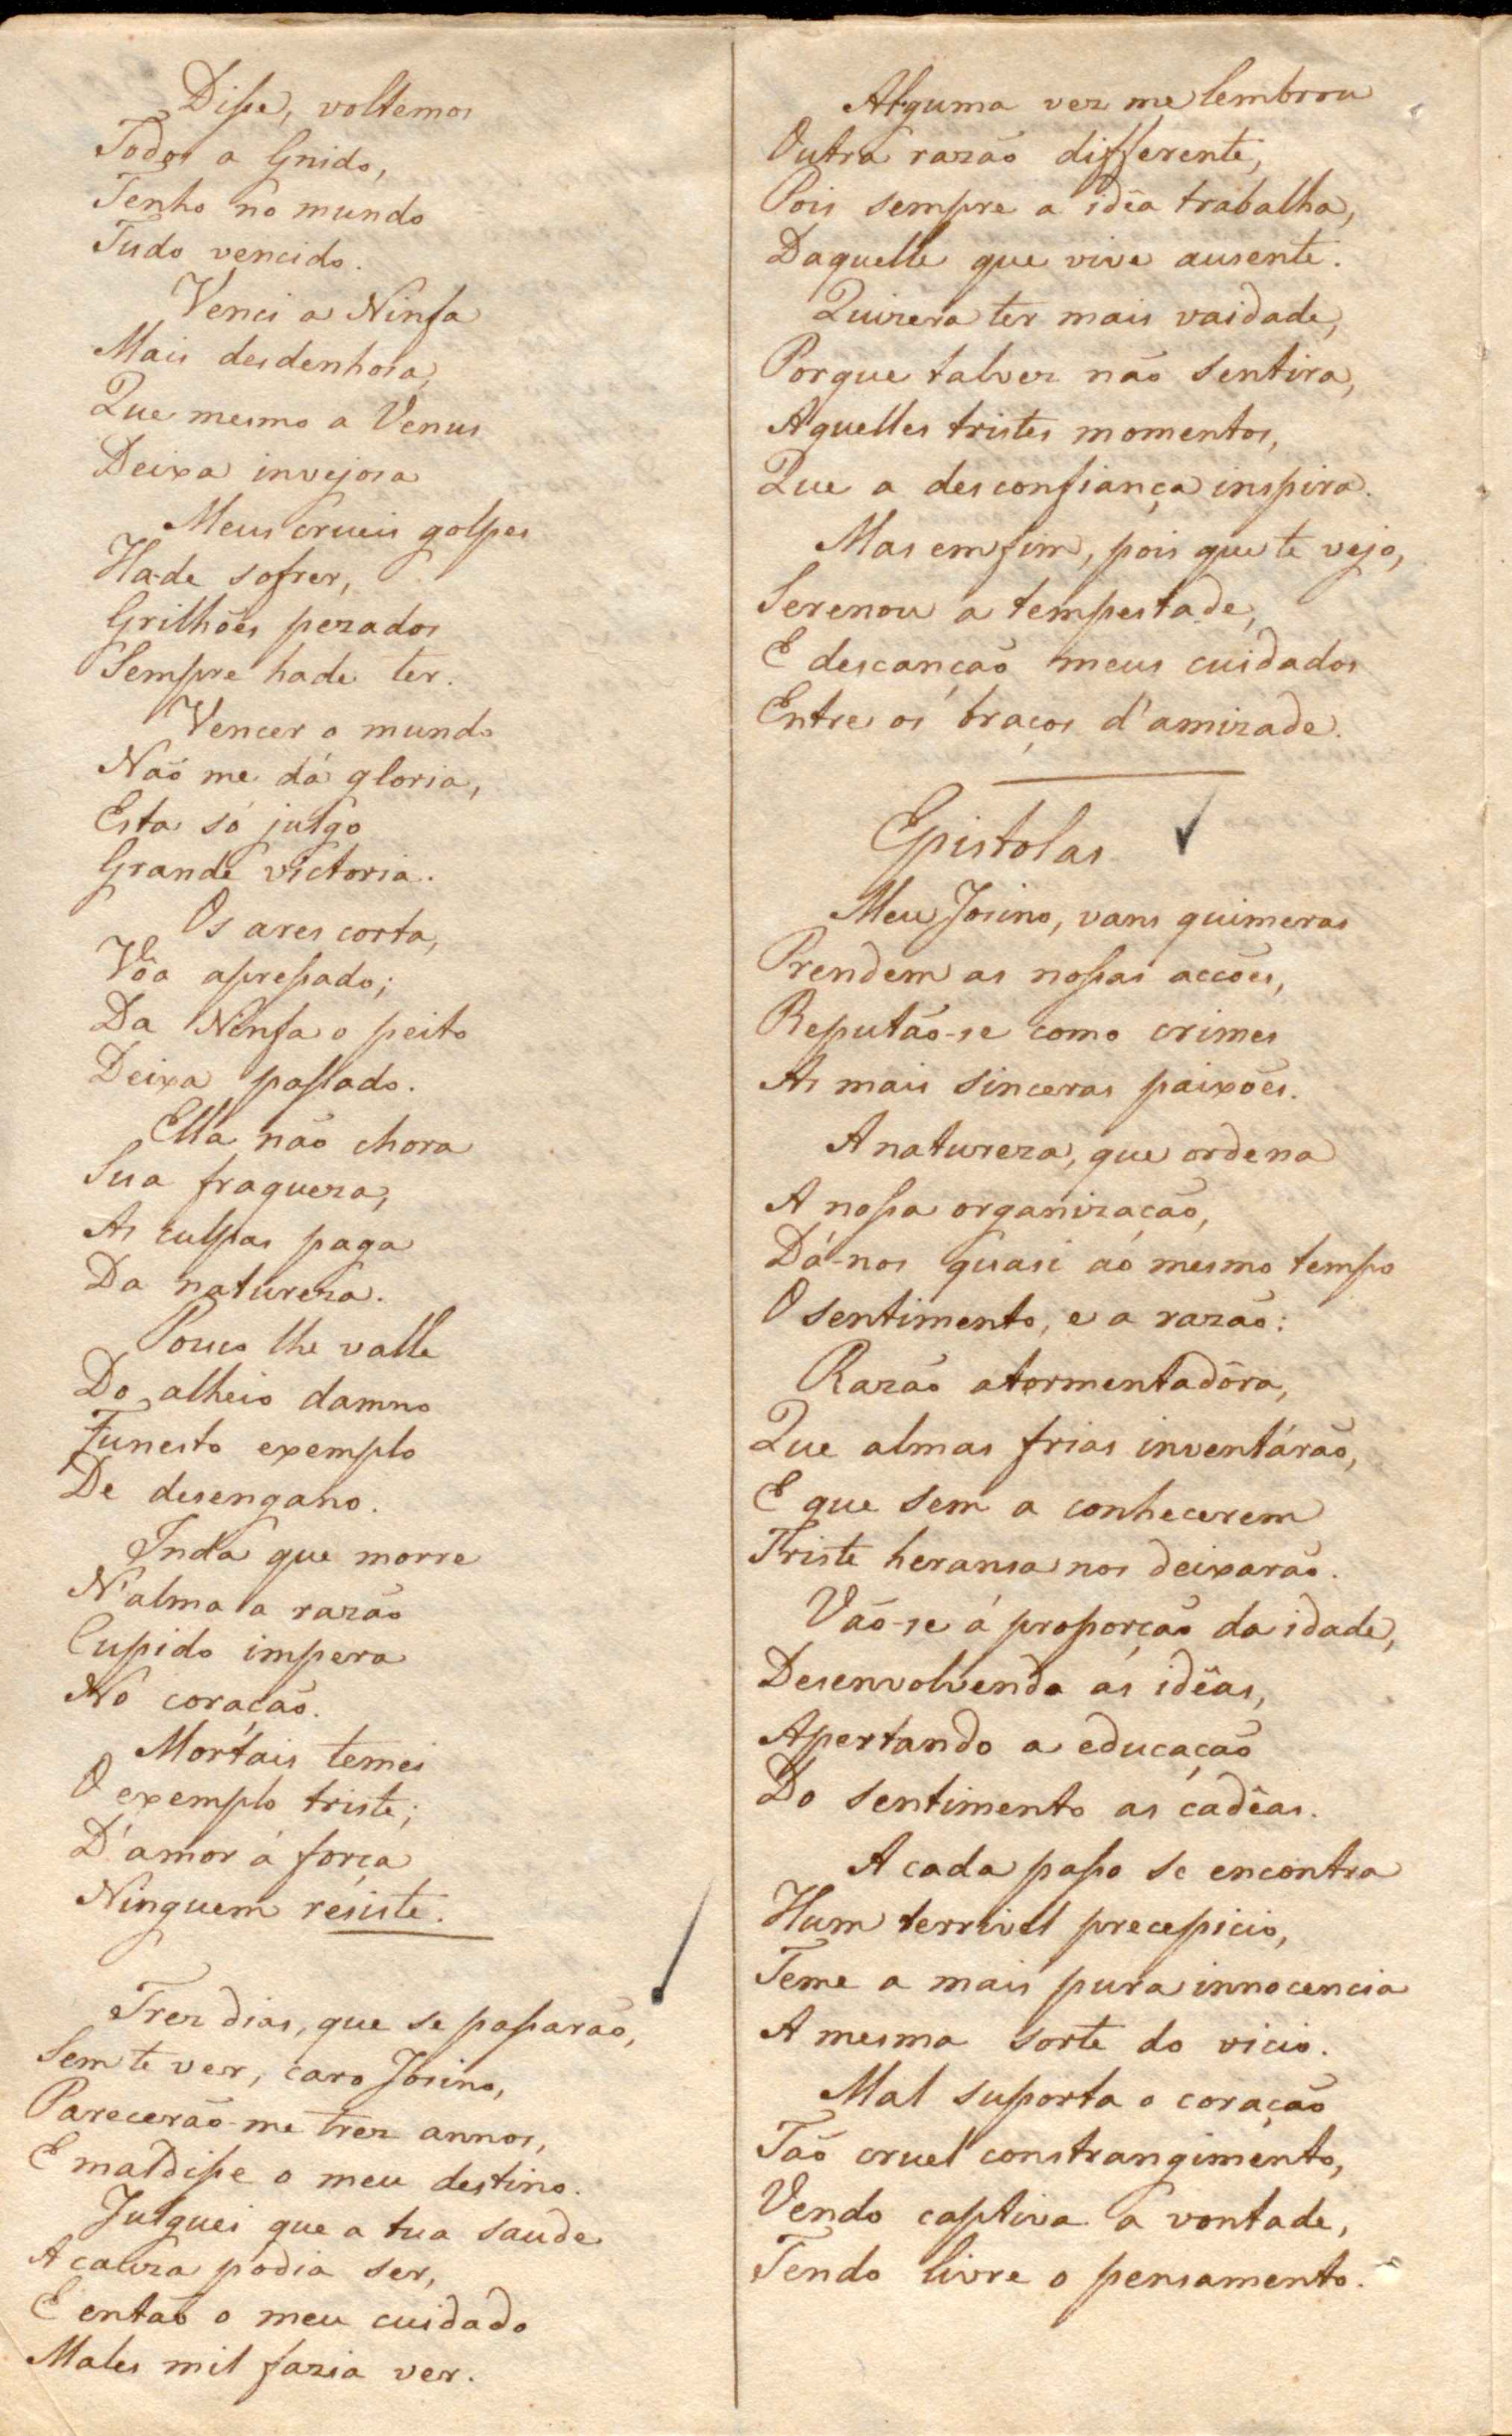 Disse, voltemos
Todos a Gnido,
Tenho no mundo
Tudo vencido.
Venci a Ninfa
Mais desdenhosa,
Que mesmo a Venus
Deixa invejosa
Meus crueis golpes
Ha-de sofrer,
Grilhões pezados
Sempre hade ter.
Vencer o mundo
Não me dá gloria,
Esta só julgo
Grande victoria.
Os ares corta,
Vôa apressado;
Da Ninfa o peito
Deixa passado.
Ella não chora
Sua fraqueza,
As culpas paga
Da natureza.
Pouco lhe valle
Do alheio damno
Funesto exemplo
De desengano.
Inda que morre
N'alma a razão
Cupido impera
No coração.
Mortais temei
O exemplo triste;
D'amor á força
Ninguem resiste.
Trez dias, que se passarão,
Sem te ver, caro Josino,
Parecerão-me trez annos,
E maldisse o meu destino.
Julguei que a tua saude
A cauza podia ser,
E então o meu cuidado
Males mil fazia ver.
Alguma vez me lembrou
Outra razão differente,
Pois sempre a idêa trabalha,
Daquelle que vive ausente.
Quizera ter mais vaidade,
Porque talvez não sentira,
Aquelles tristes momentos,
Que a desconfiança inspira.
Mas em fim, pois que te vejo,
Serenou a tempestade,
E descanção meus cuidados
Entre os braços d'amizade.
Epistolas
Meu Josino, vans quimeras
Prendem as nossas acções,
Reputão-se como crimes
As mais sinceras paixões.
A natureza, que ordena
A nossa organização,
Dá-nos quasi ao mesmo tempo
O sentimento, e a razão:
Razão atormentadôra,
Que almas frias inventárão,
E que sem a conhecerem
Triste heransa nos deixarão.
Vão-se á proporção da idade,
Desenvolvendo as idêas,
Apertando a educação
Do sentimento as cadêas.
A cada passo se encontra
Hum terrivel precepicio,
Teme a mais pura innocencia
A mesma sorte do vicio.
Mal suporta o coração
Tão cruel constrangimento,
Vendo captiva a vontade,
Tendo livre o pensamento.